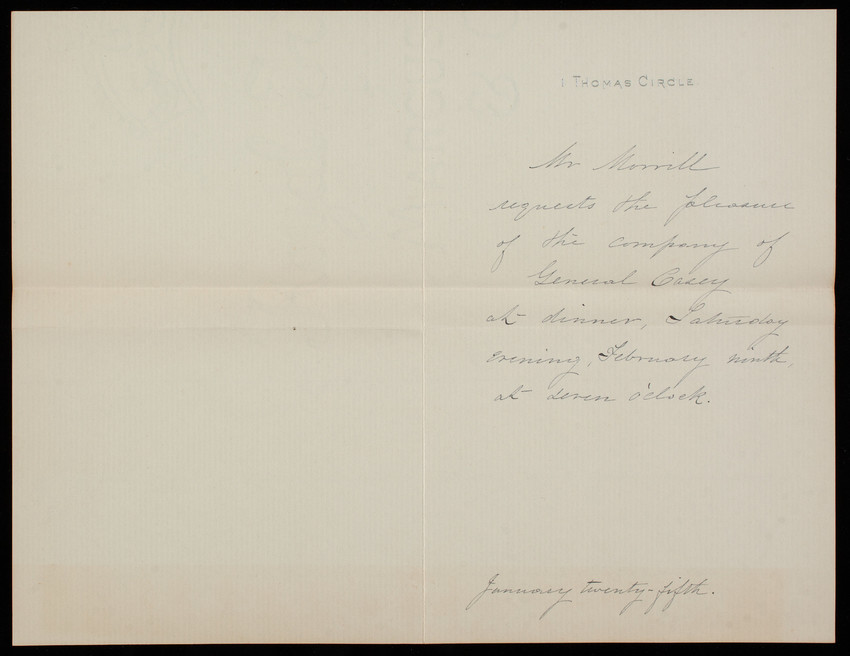 1 THOMAS CIRCLE
Mr Morrill
requests the pleasure
of the company of
General Casey
at dinner, Saturday
evening, February ninth,
at seven o'clock.
January twenty-fifth.